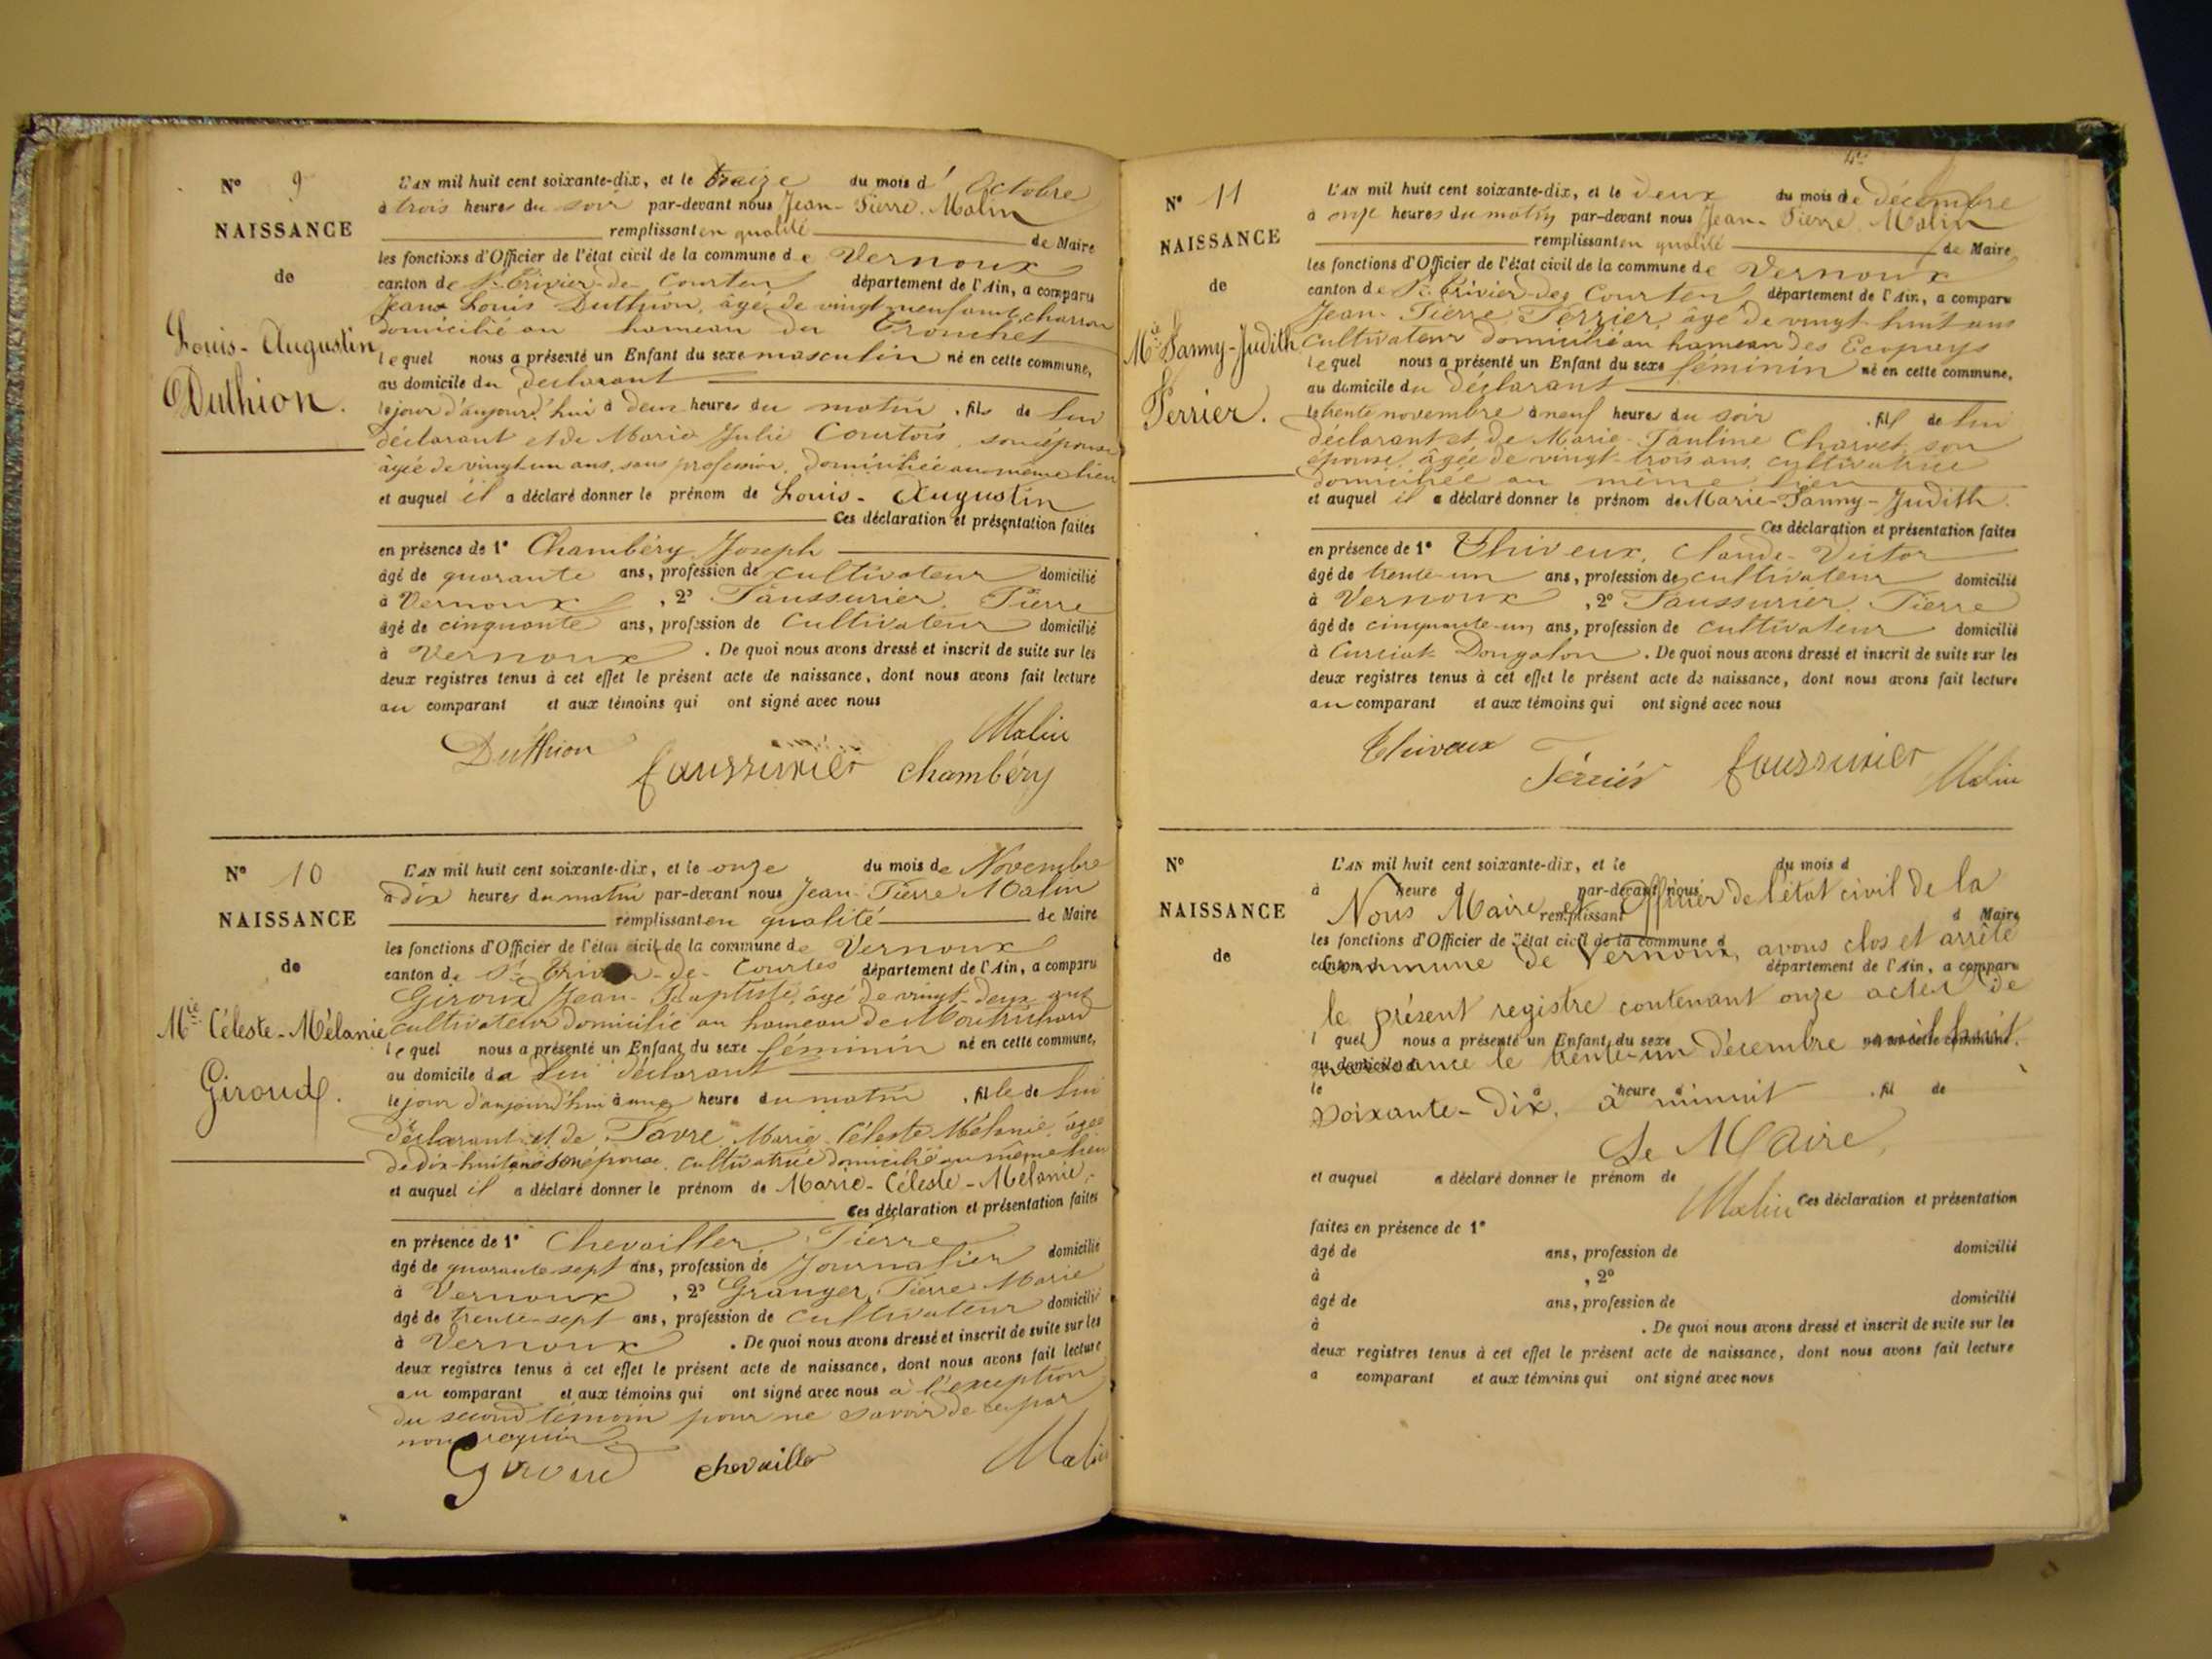 N° 9
NAISSANCE
de
Louis-Augustin
Duthion.
L'AN mil huit cent soixante-dix, et le treize du mois d'Octobre
à trois heures du soir par-devant nous Jean-Pierre Malin
remplissant en qualité de Maire
les fonctions d'Officier de l'état civil de la commune de Vernoux
canton de St Trivier-de-Courtes département de l'Ain, a comparu
Jean Louis Duthion, âgé de vingt neuf ans, charron
domicilié au hameau du Tronchet
lequel nous a présenté un Enfant du sexe masculin né en cette commune,
au domicile du déclarant
le jour d'aujourd'hui à deux heures du matin, fils de lui
déclarant et de Marie Julie Courtois, son épouse
âgée de vingt un ans, sans profession, domiciliée au même lieu
et auquel il a déclaré donner le prénom de Louis-Augustin
Ces déclaration et présentation faites
en présence de 1° Chambéry Joseph
âgé de quarante ans, profession de cultivateur domicilié
à Vernoux, 2° Faussurier, Pierre
âgé de cinquante ans, profession de cultivateur domicilié
à Vernoux. De quoi nous avons dressé et inscrit de suite sur les
deux registres tenus à cet effet le présent acte de naissance, dont nous avons fait lecture
au comparant et aux témoins qui ont signé avec nous
Malin
Duthion Faussurier Chambéry
N° 10
NAISSANCE
de
Mie Céleste-Mélanie
Giroud.
L'AN mil huit cent soixante-dix, et le onze du mois de Novembre
à dix heures du matin par-devant nous Jean-Pierre Malin
remplissant en qualité de Maire
les fonctions d'Officier de l'état civil de la commune de Vernoux
canton de St Trivier-de-Courtes département de l'Ain, a comparu
Giroud Jean-Baptiste, âgé de vingt-deux ans
cultivateur domicilié au hameau de
lequel nous a présenté un Enfant du sexe féminin né en cette commune,
au domicile de lui déclarant
le jour d'aujourd'hui à une heure du matin, fille de lui
déclarant et de Favre Marie Céleste Mélanie, âgée
de dix-huit ans son épouse, cultivatrice domiciliée au même lieu
et auquel il a déclaré donner le prénom de Marie-Céleste-Mélanie,
Ces déclaration et présentation faites
en présence de 1° Chevailler, Pierre
âgé de quarante sept ans, profession de Journalier domicilié
à Vernoux, 2° Granger, Pierre Marie
âgé de trente-sept ans, profession de cultivateur domicilié
à Vernoux. De quoi nous avons dressé et inscrit de suite sur les
deux registres tenus à cet effet le présent acte de naissance, dont nous avons fait lecture
au comparant et aux témoins qui ont signé avec nous à l'exception
du second témoin pour ne savoir de ce par
nous requis
Giroud Chevailler Malin
N° 11
NAISSANCE
de
Mie Fanny-Judith
Perrier.
L'AN mil huit cent soixante-dix, et le deux du mois de décembre
à onze heures du matin par-devant nous Jean-Pierre Malin
remplissant en qualité de Maire
les fonctions d'Officier de l'état civil de la commune de Vernoux
canton de St Trivier-des Courtes département de l'Ain, a comparu
Jean-Pierre Perrier, âgé de vingt-huit ans
cultivateur domicilié au hameau des Ecopays
lequel nous a présenté un Enfant du sexe féminin né en cette commune,
au domicile du déclarant
le trente novembre à neuf heures du soir, fil de lui
déclarant et de Marie-Pauline Charvet, son
épouse, âgée de vingt-trois ans, cultivatrice
domiciliée au même lieu
et auquel il a déclaré donner le prénom de Marie-Fanny-Judith.
Ces déclaration et présentation faites
en présence de 1° Thiveux, Claude-Victor
âgé de trente-un ans, profession de cultivateur domicilié
à Vernoux, 2° Faussurier, Pierre
âgé de cinquante-un ans, profession de cultivateur domicilié
à Curciat Dongalon. De quoi nous avons dressé et inscrit de suite sur les
deux registres tenus à cet effet le présent acte de naissance, dont nous avons fait lecture
au comparant et aux témoins qui ont signé avec nous
Thiveux Perrier Faussurier Malin
N°
NAISSANCE
de
L'AN mil huit cent soixante-dix, et le du mois d
à heure d par-devant nous
Nous Maire et Officier de l'état civil de la
remplissant d Maire
les fonctions d'Officier de l'état civil de la commune d
commune de Vernoux, avons clos et arrêté
canton d département de l'Ain, a comparu
le présent registre contenant onze actes de
l quel nous a présenté un Enfant du sexe né en cette commune,
naissance le trente-un décembre mil huit
au domicile d
le à heure d, fil de
soixante-dix, à minuit
Le Maire,
et auquel a déclaré donner le prénom de
Malin
Ces déclaration et présentation
faites en présence de 1°
âgé de ans, profession de domicilié
à , 2°
âgé de ans, profession de domicilié
à . De quoi nous avons dressé et inscrit de suite sur les
deux registres tenus à cet effet le présent acte de naissance, dont nous avons fait lecture
a comparant et aux témoins qui ont signé avec nous